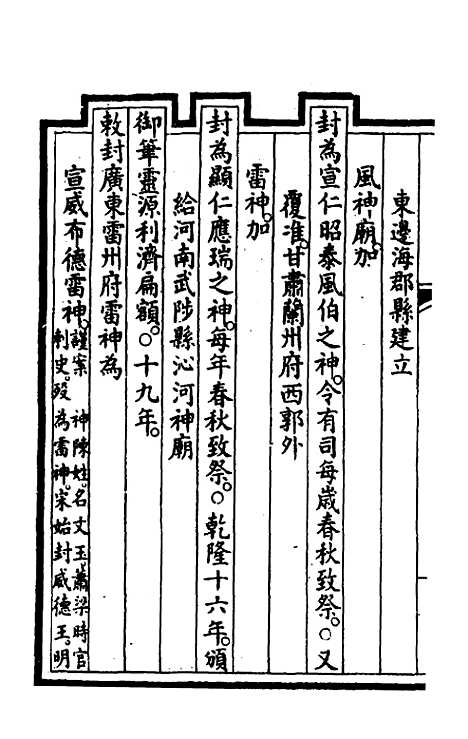 東邊海郡縣建立
風神廟。加
封為宣仁昭泰風伯之神。令有司每歲春秋致祭。○又
覆准。甘肅蘭州府西郭外
雷神。加
封為顯仁應瑞之神。每年春秋致祭。○乾隆十六年。頒
給河南武陟縣沁河神廟
御筆靈源利濟扁額。○十九年。
敕封廣東雷州府雷神為
宣威布德雷神。謹案 神陳姓。名文玉。蕭梁時官
刺史。歿 為雷神。宋始封威德王。明